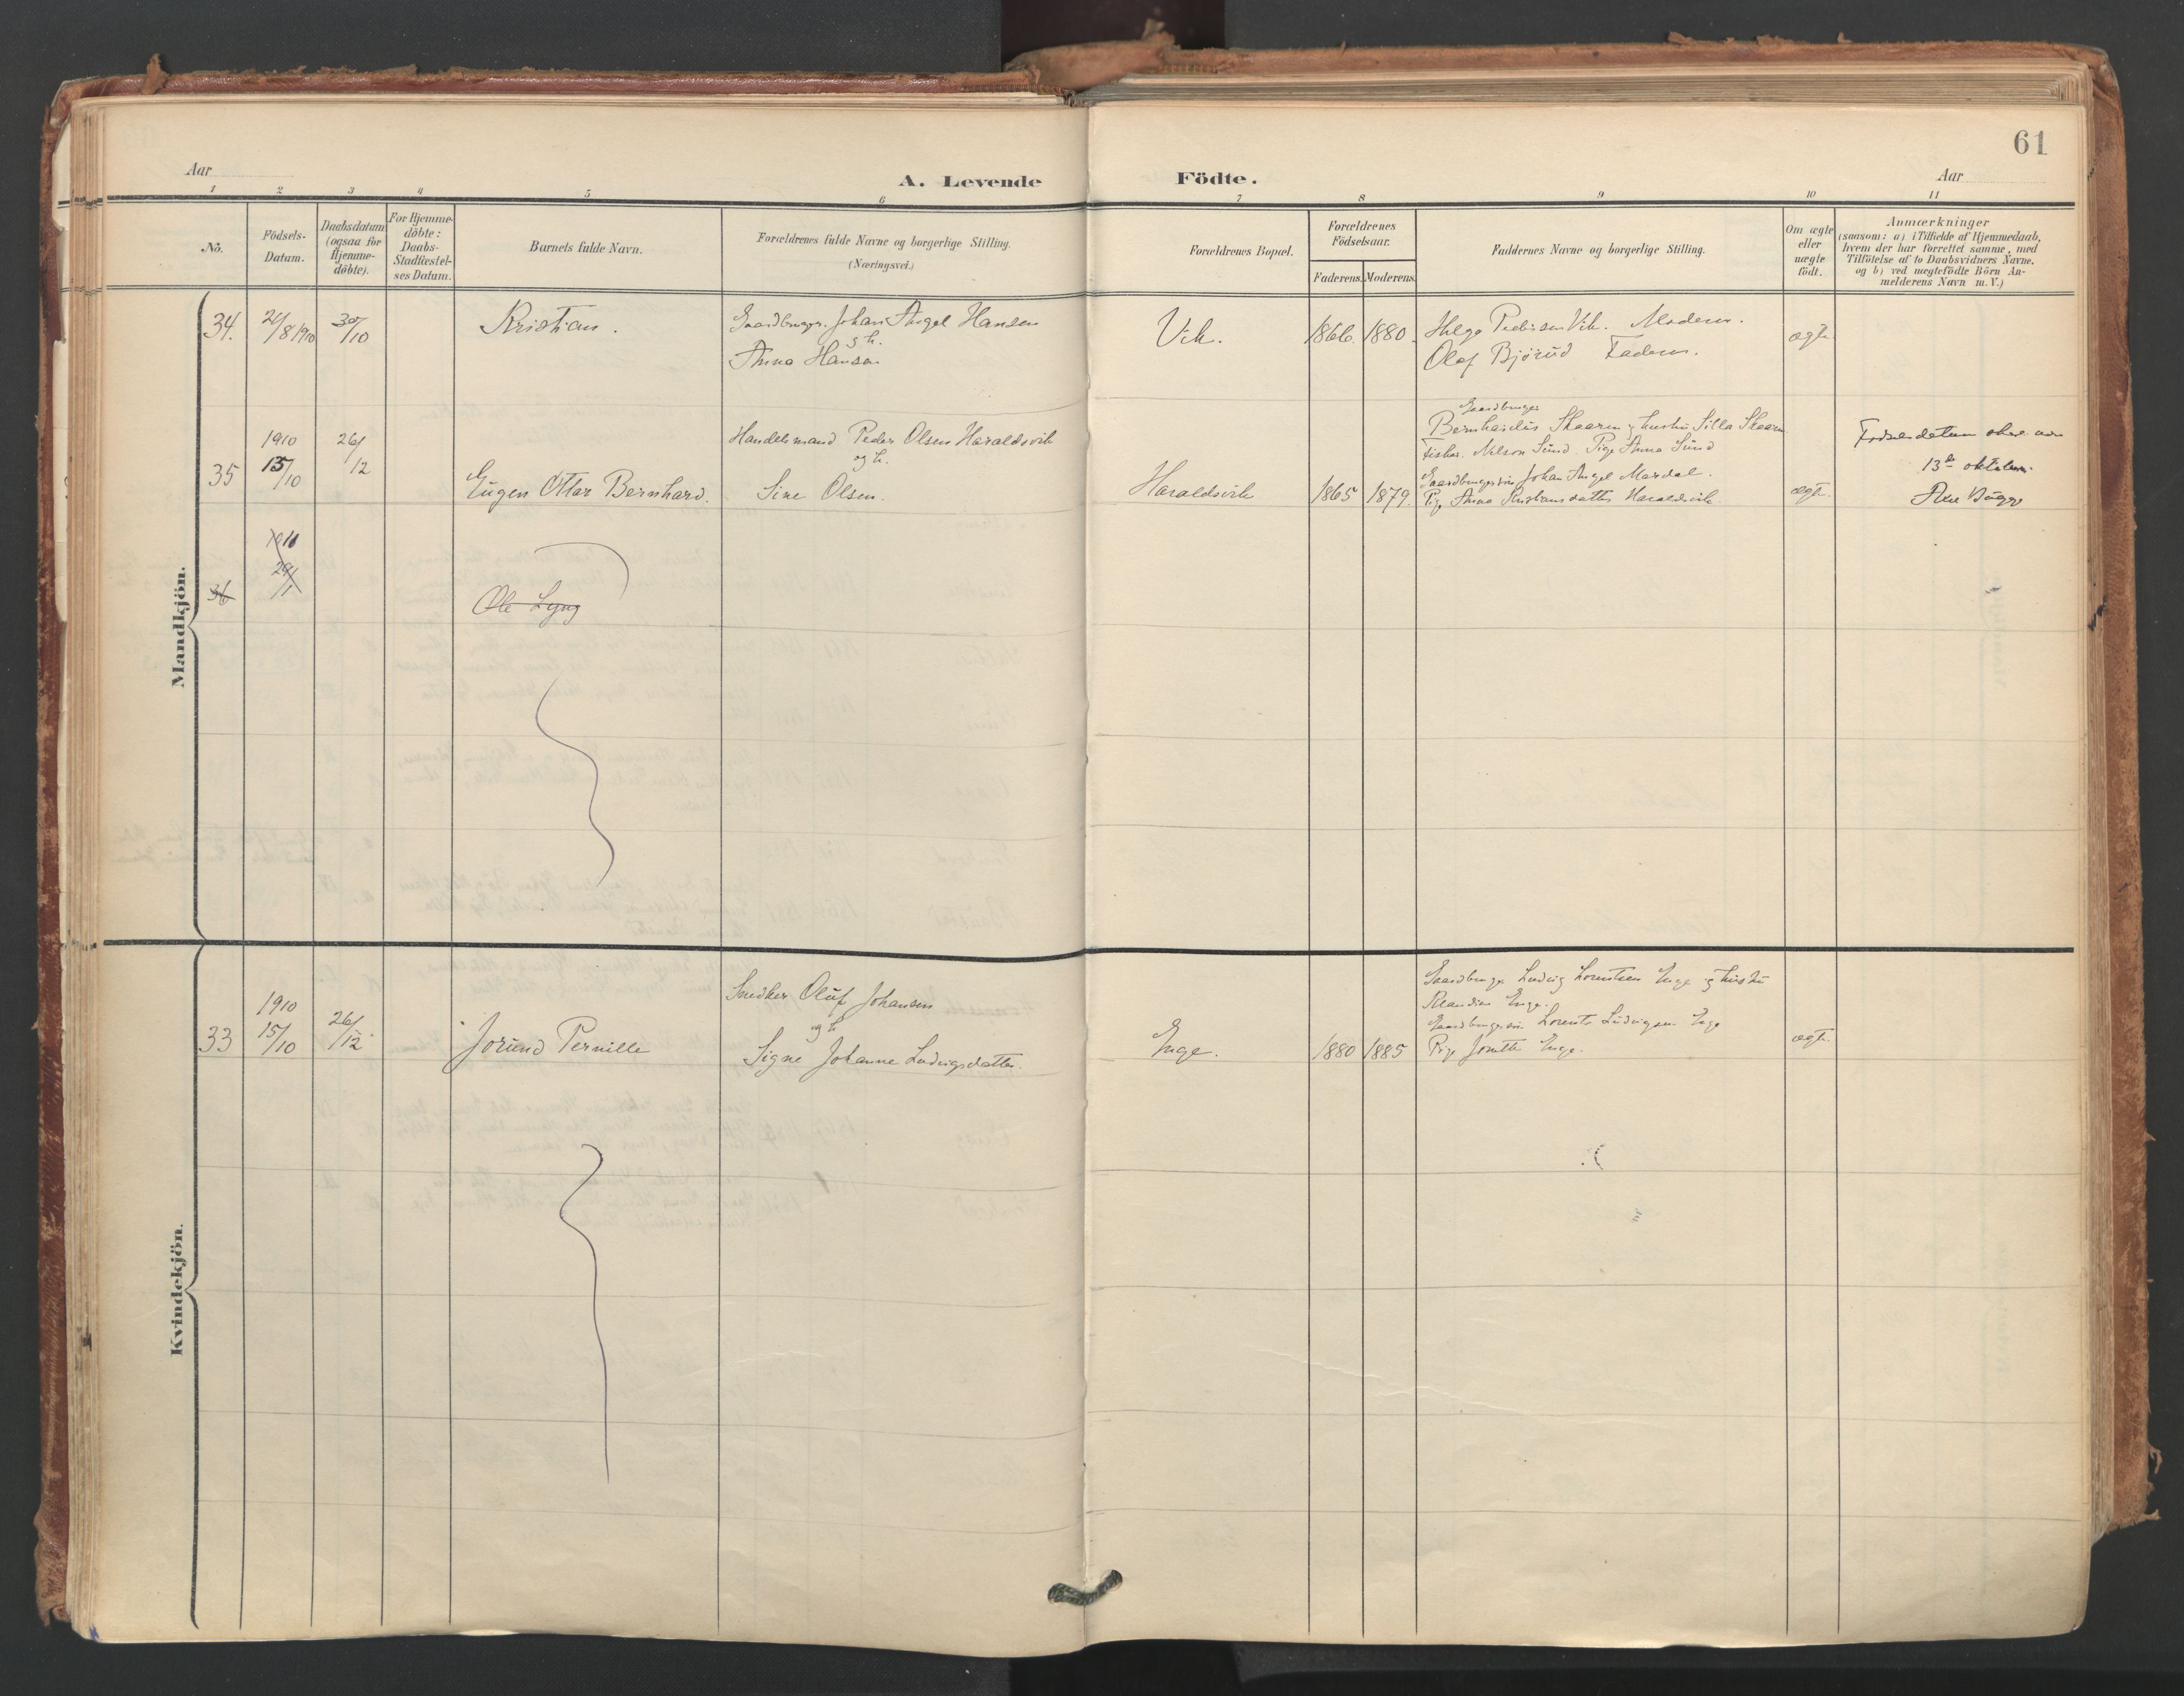 61
Aar
A. Levende Födte.
Aar
1 2 3 4 5 6 7 8 9 10 11
No.
Födsels-
Datum.
Daabsdatum
(ogsaa for
Hjemme-
döbte).
For Hjemme-
döbte:
Daabs-
Stadfæstel-
ses Datum.
Barnets fulde Navn.
Forældrenes fulde Navne og borgerlige Stilling.
(Næringsvei.)
Forældrenes Bopæl.
Forældrenes
Födselsaar.
Faderens. Moderens.
Faddernes Navne og borgerlige Stilling.
Om ægte
eller
uægte
födt.
Anmærkninger
(saasom: a) i Tilfælde af Hjemmedaab,
hvem der har forrettet samme, med
Tilföielse af to Daabsvidners Navne.
og b) ved uægtefödte Börn An-
melderens Navn m. V.)
Mandkjön.
34. 21/8 1910 30/10 Kristian.
Gaardbruger Johan Angel Hansen
og h.
Anna Hansen
Vik. 1866. 1880.
Helge Pedersen Vik. Moderen.
Olaf Björüd Faderen.
ægte
35 1910 13/10 26/12
Eugen Ottar Bernhard.
Handelsmand Peder Olsen Haraldsvik
og h.
Sine Olsen.
Haraldsvik 1865 1879.
Gaardbruger
Bernhardüs Skaaren og hustrü Silla Skaaren
Fisker Nilson Sünd. Pige Anna Sünd
Gaardbrugersön Johan Angel Mardal.
Pige Anna Kristiansdatter Haraldsvik
ægte.
Födselsdatum skal være
13de oktober.
36 1911 29/1
Ole Lyng
Kvindekjön.
33 1910 15/10 26/12
Joründ Pernille
Snedker Olüf Johansen
og h
Signe Johanne Ludvigsdatter.
Enge. 1880 1885
Gaardbruger Ludvig Lorentsen Enge og hustrü
Enge.
Gaardbrugersön Lorents Ludvigsen Enge
Pige Jonette Enge.
ægte.